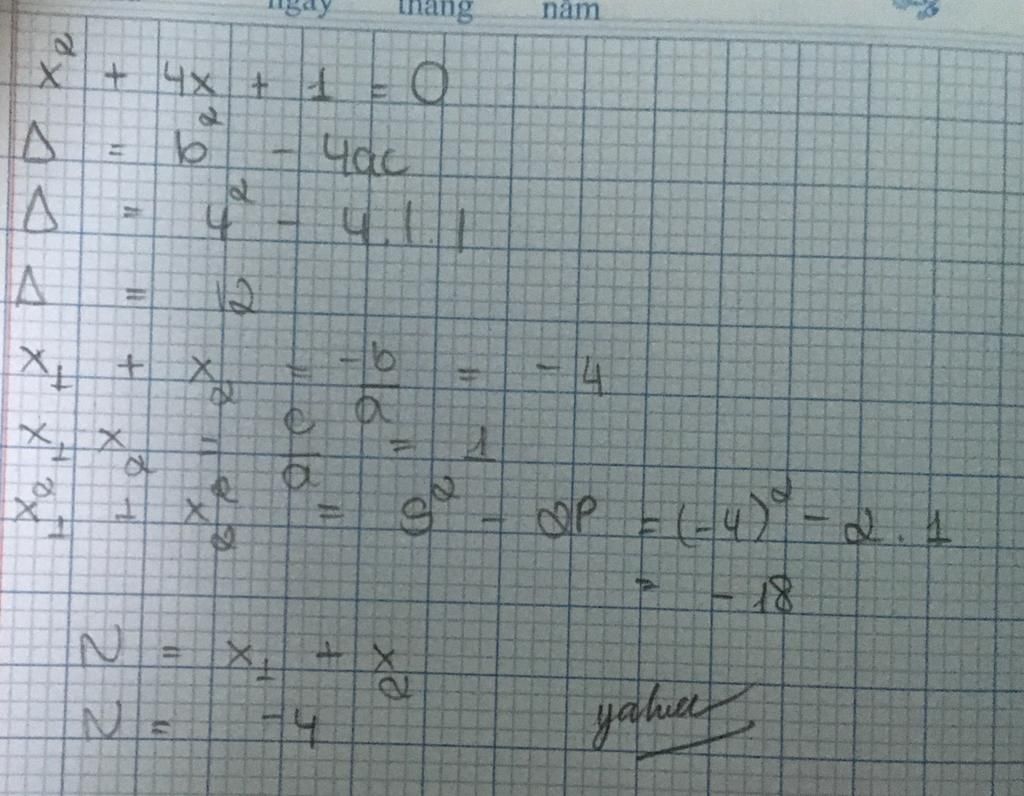 ngày tháng năm
x² + 4x + 1 = 0
Δ = b² - 4ac
Δ = 4² - 4.1.1
Δ = 12
x₁ + x₂ = -b/a = -4
x₁ x₂ = c/a = 1
x₁² + x₂² = S² - 2P = (-4)² - 2.1
= -18
N = x₁ + x₂
N = -4